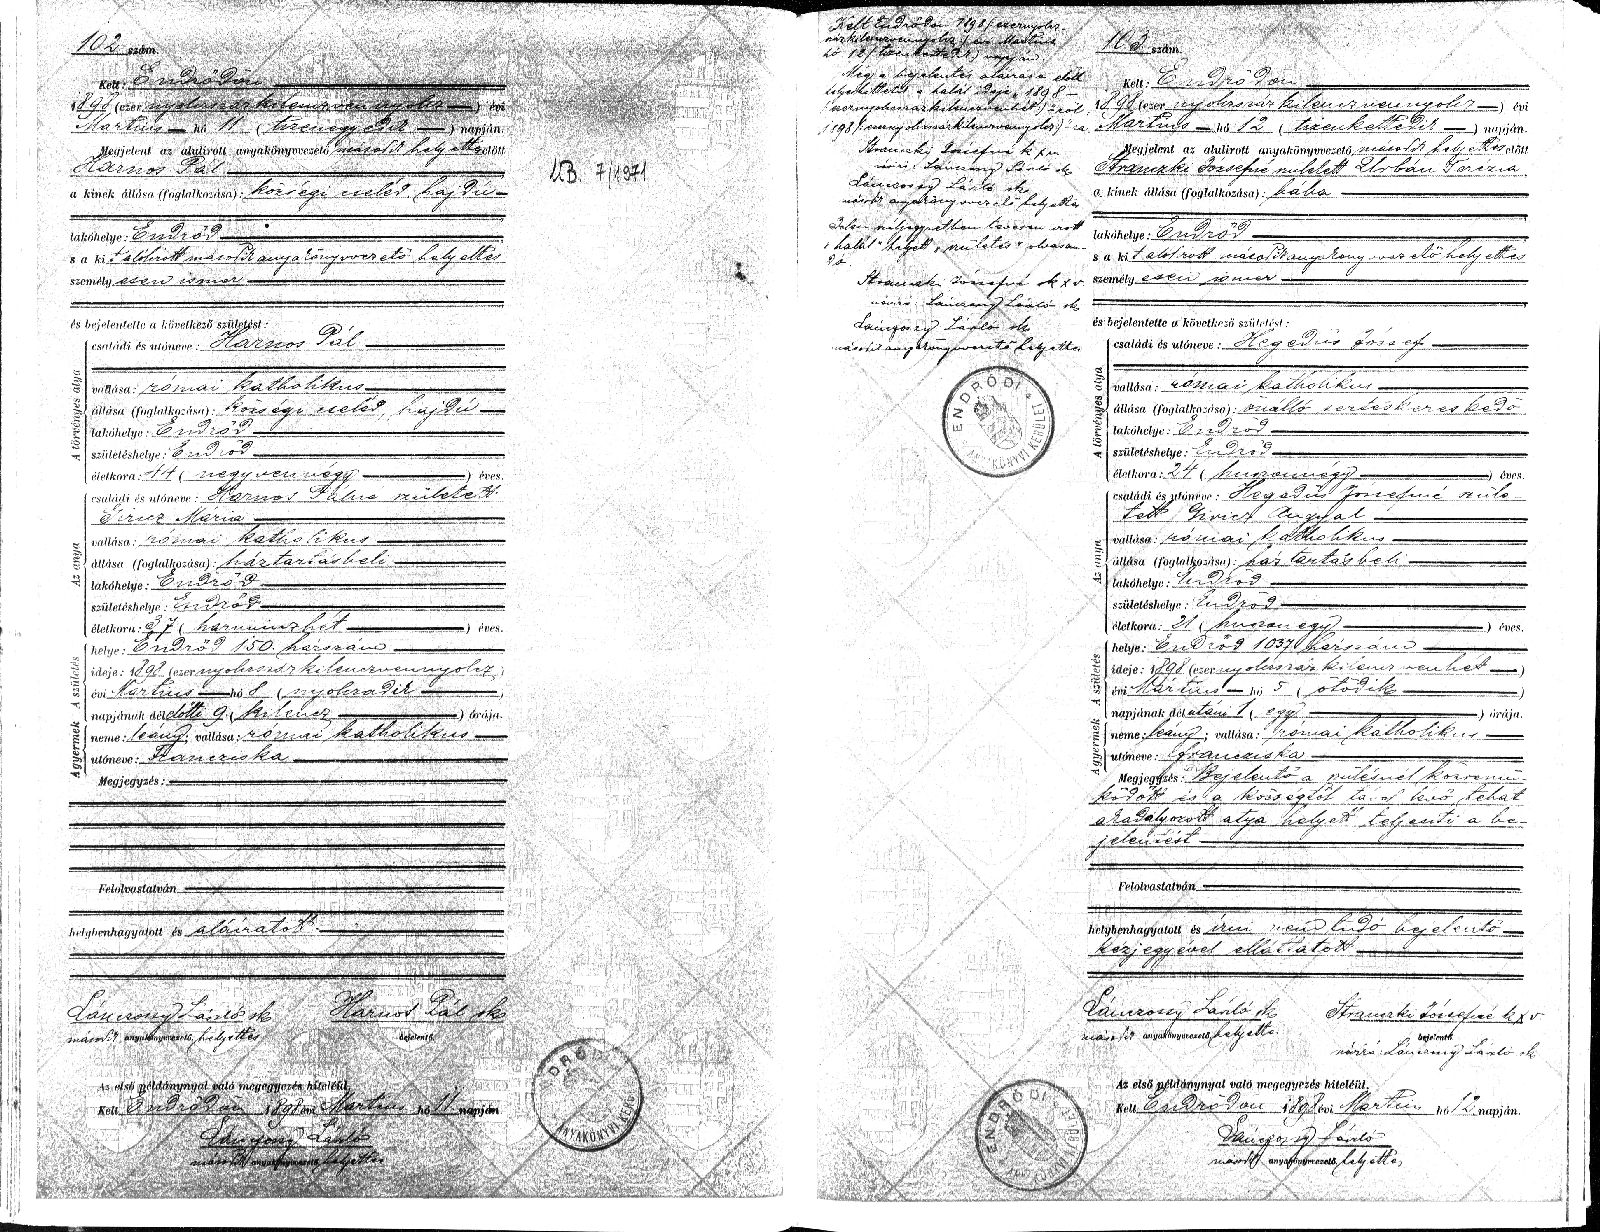 102 szám.
Kelt: Endrődön
1898 (ezernyolcszázkilenczvennyolcz) évi
Martius hó 11 (tizenegyedik) napján.
Megjelent az alulirott anyakönyvvezető másodh helyettes előtt
Harnos Pál
a kinek állása (foglalkozása): községi cseléd, hajdú
lakóhelye: Endrőd
s a kit alólirott másodh anyakönyvvezető helyettes
személyesen ismer
és bejelentette a következő születést:
A törvényes atya
családi és utóneve: Harnos Pál
vallása: római katholikus
állása (foglalkozása): községi cseléd, hajdú
lakóhelye: Endrőd
születéshelye: Endrőd
életkora: 44 (negyvennégy) éves.
Az anya
családi és utóneve: Harnos Pálné született
Mária
vallása: római katholikus
állása (foglalkozása): háztartásbeli
lakóhelye: Endrőd
születéshelye: Endrőd
életkora: 37 (harminczhét) éves.
A születés
helye: Endrőd 150. házszám
ideje: 1898 (ezernyolcszázkilenczvennyolcz)
évi Martius hó 8 (nyolczadik)
napjának délelőtti 9 (kilencz) órája.
A gyermek
neme: leány; vallása: római katholikus
utóneve: Francziska
Megjegyzés:
Felolvastatván
helybenhagyatott és aláiratott.
Lánczossy László sk Harnos Pál sk
másodh anyakönyvvezető, helyettes bejelentő.
Az első példánynyal való megegyezés hiteléül.
Kelt Endrődön 1898 évi Martius hó 11 napján
Lánczossy László
másodh anyakönyvvezető helyettes
ENDRŐDI ANYAKÖNYVI KERÜLET
7/1971
Kelt Endrődön 1898 (ezernyolcz-
százkilenczvennyolcz) évi Martius
hó 12 (tizenkettedik) napján
Megj a bejelentés aláirása előtt
Stranczki Józsefné k x v
névíró: Lánczossy László sk
Lánczossy László sk
másodh anyakönyvvezető helyettes
"halál" helyett "születés" olvasan-
dó.
Stranczki Józsefné sk x v
névíró: Lánczossy László sk
Lánczossy László sk
másodh anyakönyvvezető helyettes
ENDRŐDI ANYAKÖNYVI KERÜLET
103 szám.
Kelt: Endrődön
1898 (ezernyolcszázkilenczvennyolcz) évi
Martius hó 12 (tizenkettedik) napján.
Megjelent az alulirott anyakönyvvezető, másodh helyettes előtt
Stranczki Józsefné született Urbán Terézia
a kinek állása (foglalkozása): bába
lakóhelye: Endrőd
s a kit alólirott másodh anyakönyvvezető helyettes
személyesen ismer
és bejelentette a következő születést:
A törvényes atya
családi és utóneve: Hegedűs József
vallása: római katholikus
állása (foglalkozása): önálló sertéskereskedő
lakóhelye: Endrőd
születéshelye: Endrőd
életkora: 24 (huszonnégy) éves.
Az anya
családi és utóneve: Hegedűs Józsefné szüle-
tett Angyal
vallása: római katholikus
állása (foglalkozása): háztartásbeli
lakóhelye: Endrőd
születéshelye: Endrőd
életkora: 21 (huszonegy) éves.
A születés
helye: Endrőd 1037 házszám
ideje: 1898 (ezernyolcszázkilenczvenhét)
évi Mártius hó 5 (ötödik)
napjának délutáni 1 (egy) órája.
A gyermek
neme: leány; vallása: római katholikus
utóneve: Francziska
Megjegyzés: Bejelentő a szülésnél közremű-
ködött és a községtől távol levő, tehát
akadályozott atya helyett teljesíti a be-
jelentést
Felolvastatván
helybenhagyatott és írni nem tudó bejelentő
kézjegyével elláttatott
Lánczossy László sk Stranczki Józsefné k x v
másodh anyakönyvvezető, helyettes. bejelentő.
névíró: Lánczossy László sk
Az első példánynyal való megegyezés hiteléül.
Kelt Endrődön 1898 évi Martius hó 12 napján.
Lánczossy László
másodh anyakönyvvezető, helyettes
ENDRŐDI ANYAKÖNYVI KERÜLET